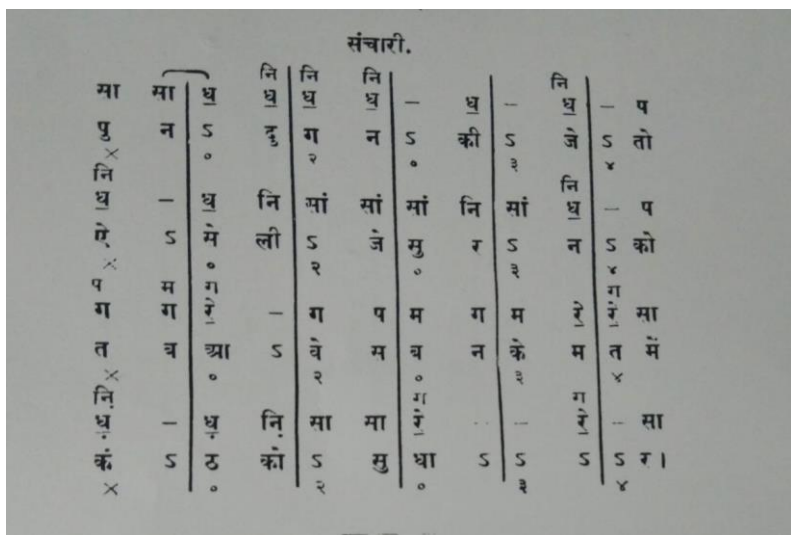 संचारी.
नि नि नि नि
सा सा ध॒ ध॒ ध॒ ध॒ – ध॒ – ध॒ – प
पु न ऽ दु ग न ऽ की ऽ जे ऽ तो
× ० २ ० ३ ४
नि नि
ध॒ – ध॒ नि सां सां सां नि सां ध॒ – प
ऐ ऽ में ली ऽ जे सु र ऽ न ऽ को
× ० २ ० ३ ४
प म ग ग
ग ग रे॒ – ग प म ग म रे॒ रे॒ सा
त ब आ ऽ वे स ब न के म त में
× ० २ ० ३ ४
नि़ ग ग
ध़॒ – ध़॒ नि़ सा सा रे॒ – – रे॒ – सा
कं ऽ ठ को ऽ सु धा ऽ ऽ ऽ ऽ र।
× ० २ ० ३ ४